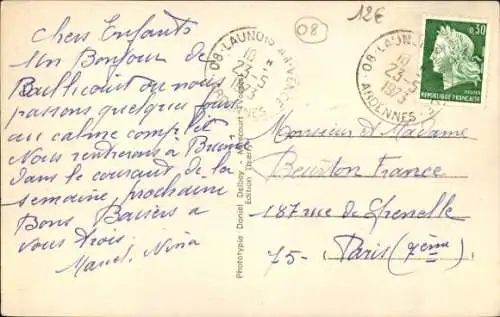 Chers Enfants
Un Bonjour de
Baillicourt ou nous
passons quelques jours
au calme complet
Nous rentrerons à
dans le courant de la
semaine prochaine
Bons Baisers à
vous trois.
Marcel. Nina
Phototypie Daniel Delboy - Mirecourt
Edition
08-LAUNOIS
10
23-5
1973
ARDENNES
08
12€
08-LAUN
10
23-5
1973
ARDENNES
0,30
REPUBLIQUE FRANÇAISE
Monsieur et Madame
France
187 rue de Grenelle
75- Paris (7ème)